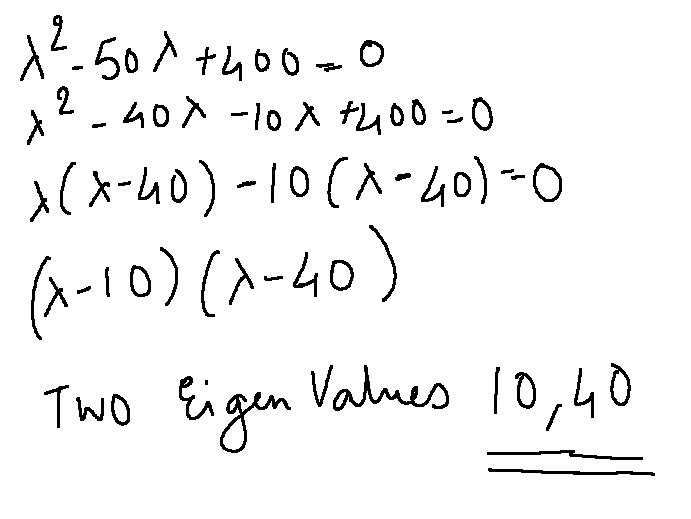 λ² - 50λ + 400 = 0
λ² - 40λ - 10λ + 400 = 0
λ(λ-40) - 10(λ-40) = 0
(λ-10)(λ-40)
Two Eigen Values 10,40